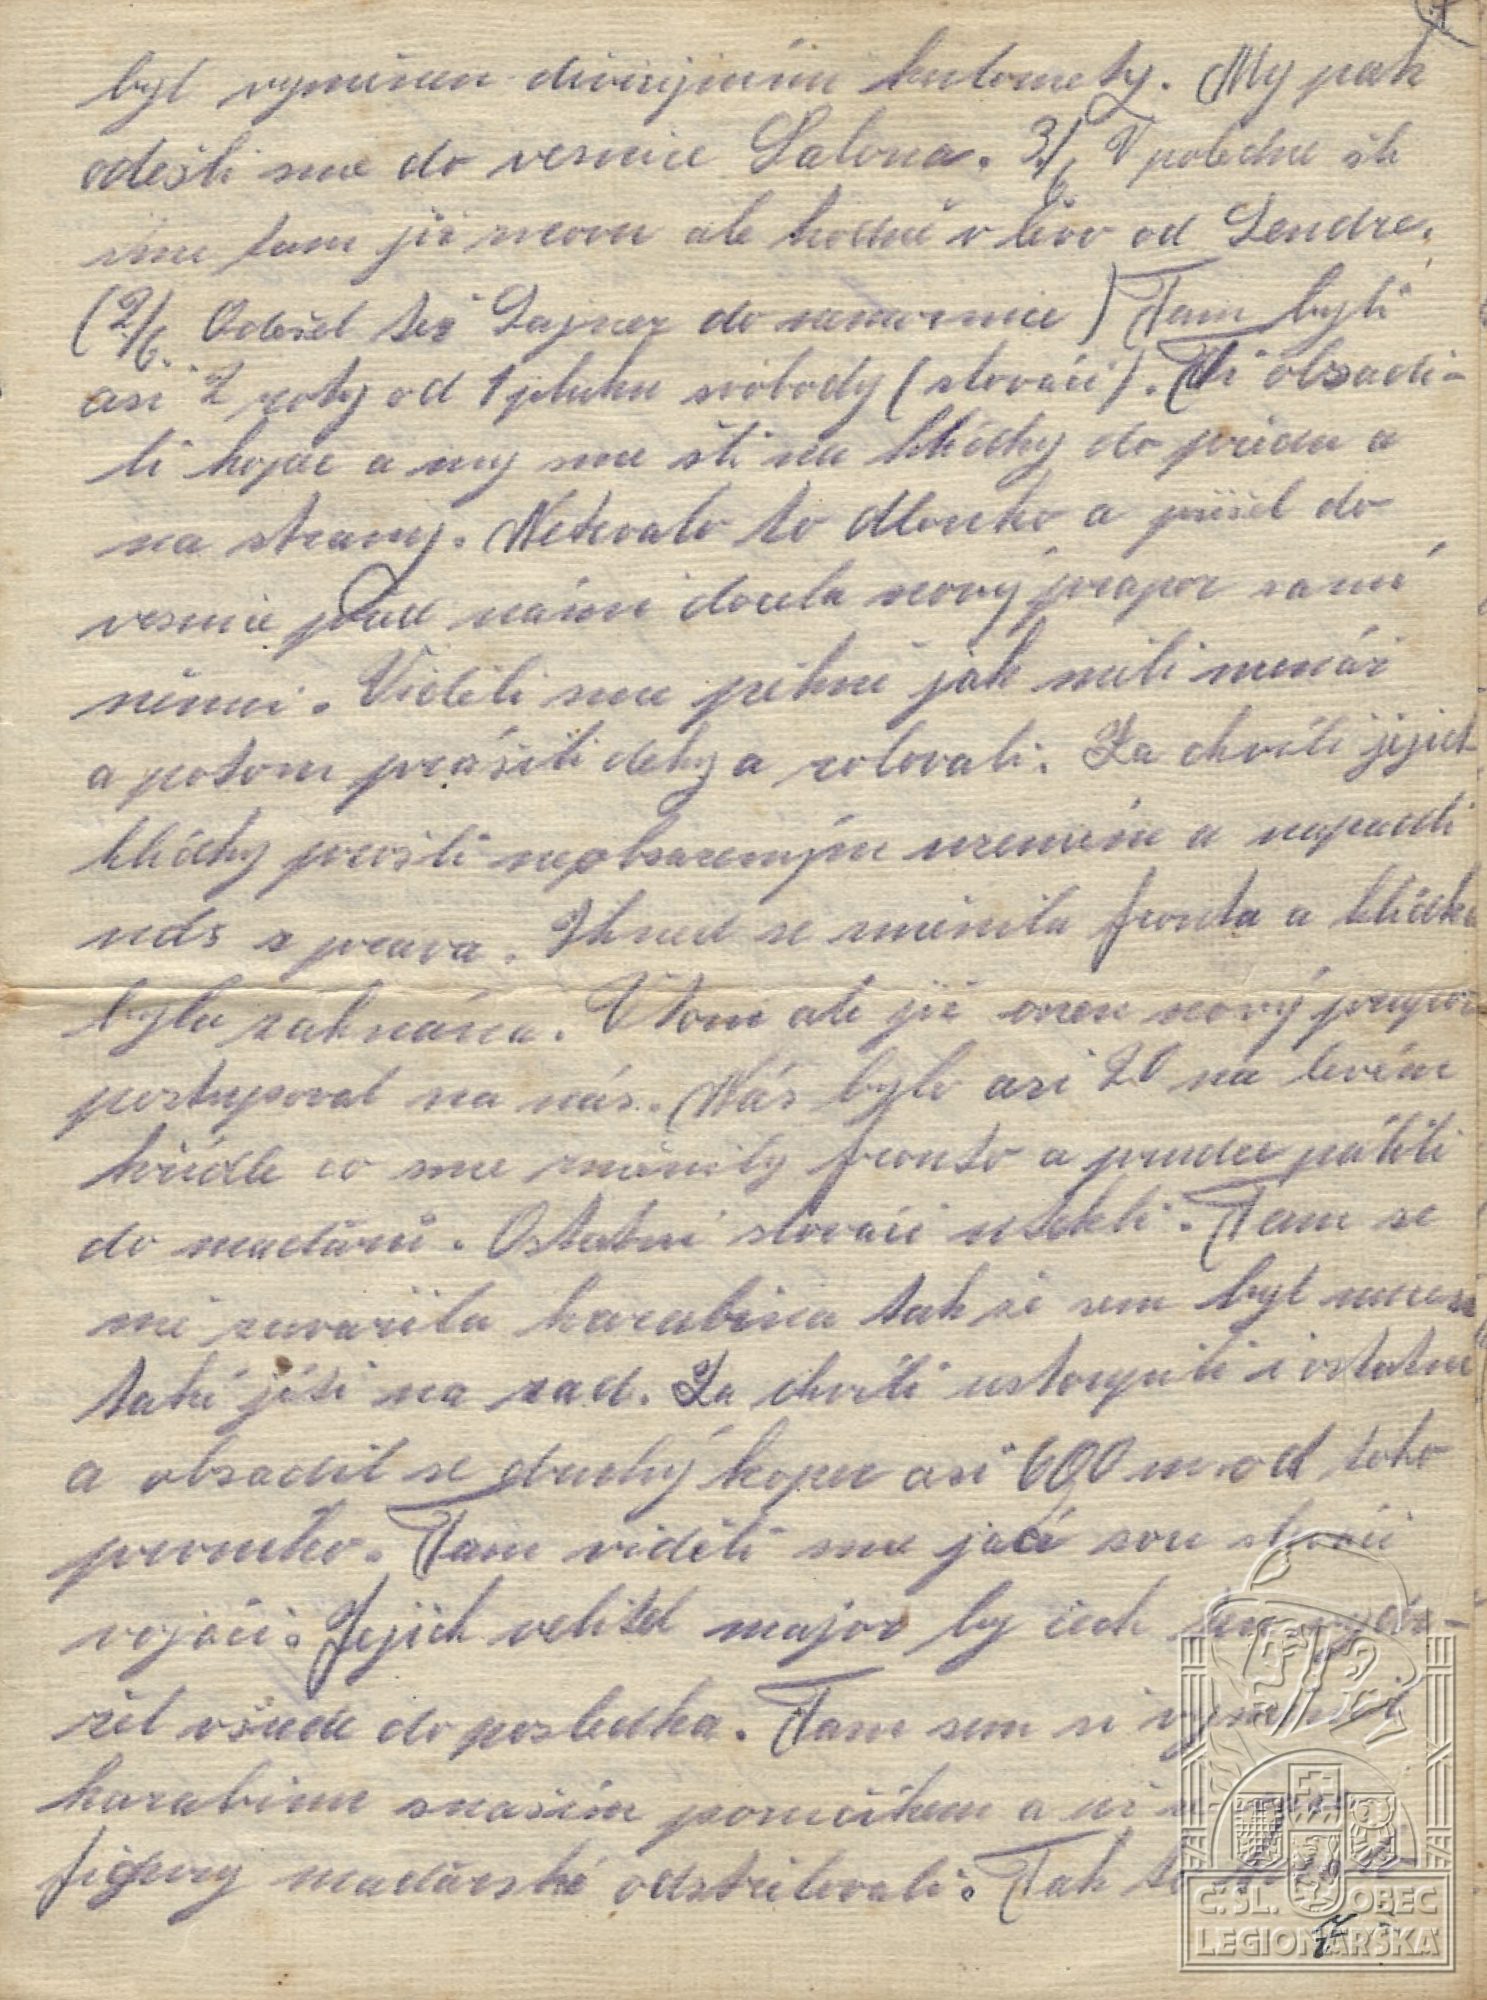 7
byl vyměnen divisijním kulomety. My pak
odešli sme do vesnice Salona. 3/6 V poledne šli
sme tam již znovu ale hodně v levo od Lendre.
(2/6. Odešel též Lajner do nemocnice) Tam byli
asi 2 roty od 1 pluku svobody (slováci). Ti obsadi-
li kopec a my sme šli na hlídky do předu a
na strany. Netrvalo to dlouho a přišel do
vesnice pred námi docela nový prapor samí
němci. Viděli sme pěkně jak měli menáž
a potom prášili deky a rolovali. Za chvíli jejich
hlídky prošli neobsazeným uzemím a napadli
nás s prava. Ihned se změnila fronta a hlídka
byla zahnána. V tom ale již onen nový prapor
postupoval na nás. Nás bylo asi 20 na levém
křídle co sme změnily fronto a prudce pálili
do maďarů. Ostatní slováci utekli. Tam se
mě zavařila karabina tak že sem byl nucen
také jíti na zad. Za chvíli ustoupili i ostatní
a obsadil se druhý kopec asi 600 m od toho
prvního. Tam viděli sme jací sou slováci
vojáci. Jejich velitel major by čech ten vydr-
žel všude do posledka. Tam sem si vyměnil
karabinu s naším pomočíkem a
figury maďarské odstřelovali. Tak to
7
Č. SL. OBEC
LEGIONÁŘSKÁ